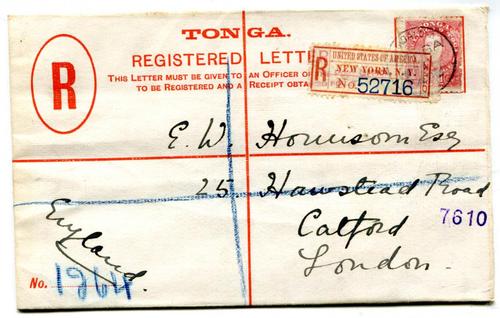 TONGA.
REGISTERED LETTE
THIS LETTER MUST BE GIVEN TO AN OFFICER O
TO BE REGISTERED AND A RECEIPT OBTA
R
R
UNITED STATES OF AMERICA
NEW YORK, N.Y.
No. 52716
TONGA
E. W. Harrison Esq
25 Hawstead Road
Catford
London.
England.
7610
No. 1264